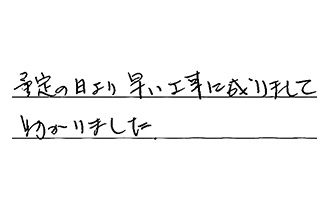 予定の日より早い工事に成りまして
助かりました